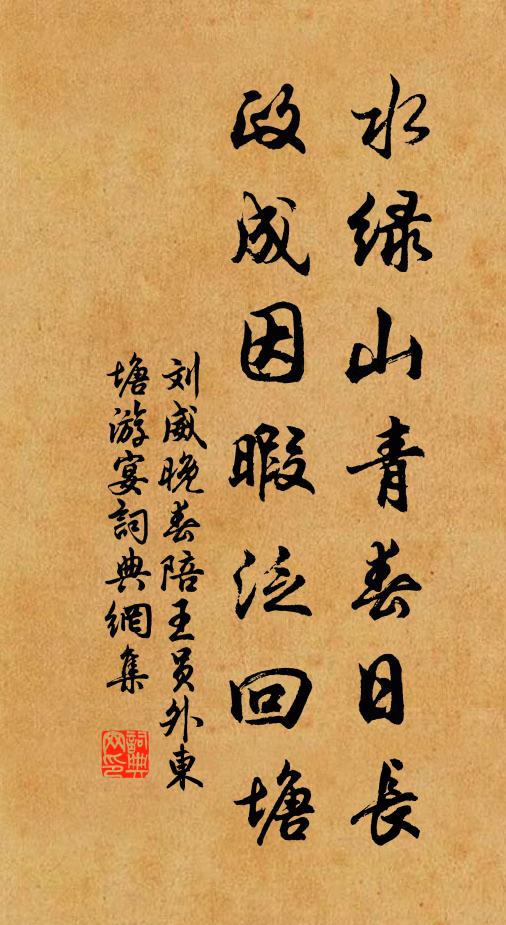 水绿山青春日長
政成因暇泛回塘
刘威晚春陪王员外東
塘游宴詞典網集
詞典
网印